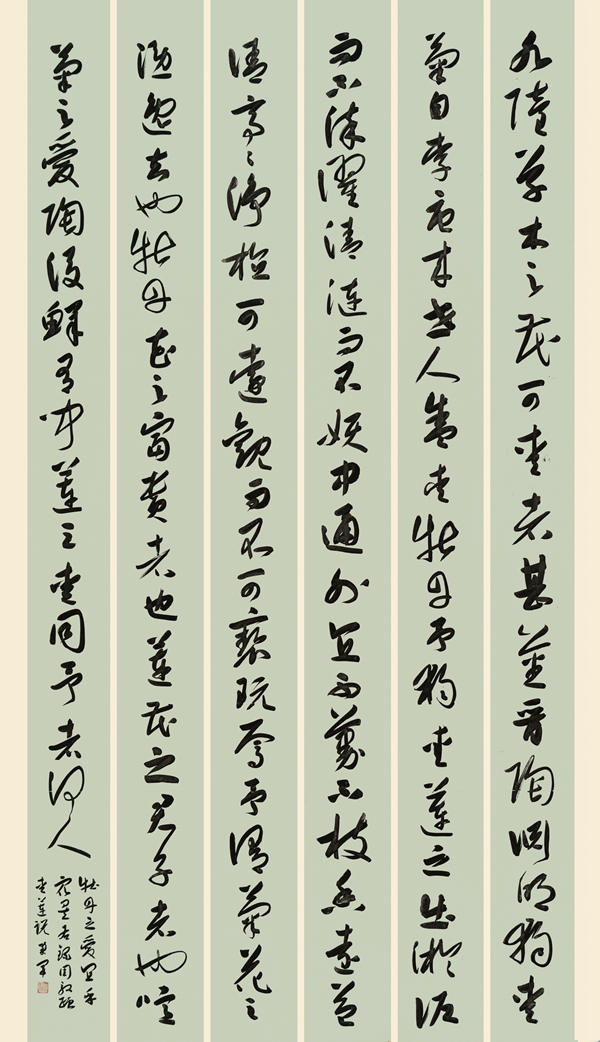 水陸草木之花可愛者甚蕃晉陶淵明獨愛
菊自李唐來世人盛愛牡丹予獨愛蓮之出淤泥
而不染濯清漣而不妖中通外直不蔓不枝香遠益
清亭々淨植可遠觀而不可褻玩焉予謂菊花之
隱逸者也牡丹花之富貴者也蓮花之君子者也噫
菊之愛陶後鮮有聞蓮之愛同予者何人
牡丹之愛宜乎
眾矣右錄周敦頤
愛蓮說